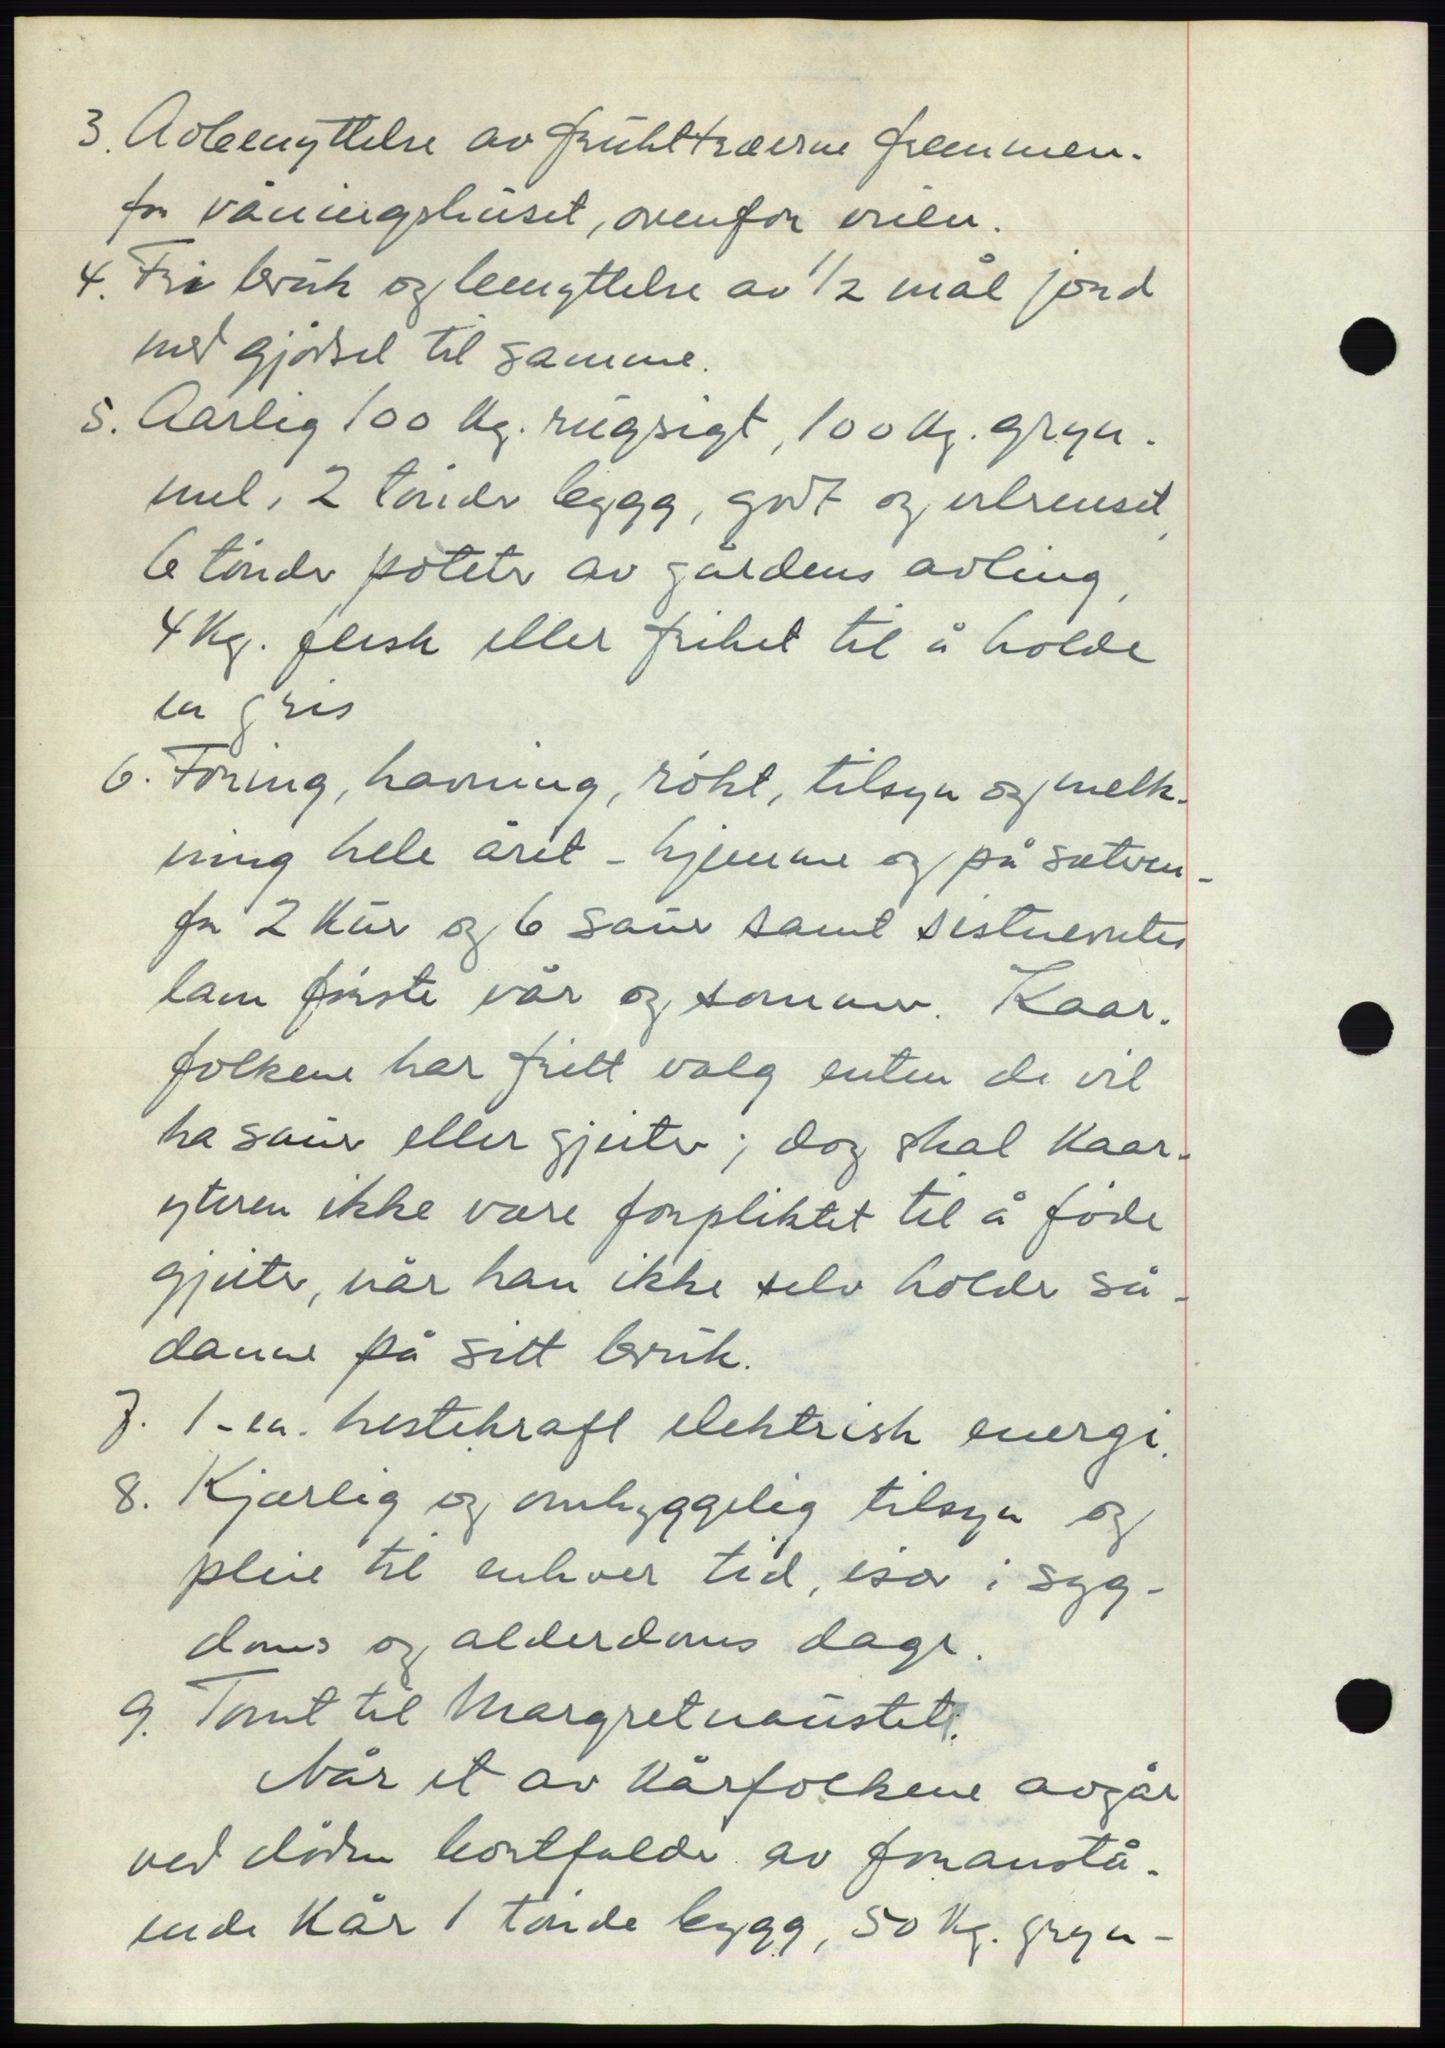 3. Avbenyttelse av frukttræerne fremmen-
for våningshuset, ovenfor veien.
4. Fri bruk og benyttelse av 1/2 mål jord
med gjødsel til samme.
5. Aarlig 100 kg. rugsigt, 100 kg. gryn-
mel, 2 tønder bygg, godt og velrenset,
6 tønder poteter av gårdens avling,
4 kg. flesk eller frihet til å holde
en gris
6. Foring, havning, røkt, tilsyn og melk-
ning hele året - hjemme og på sæteren -
for 2 kür og 6 sauer samt sistnevntes
lam første vår og sommer. Kaar-
folkene har fritt valg enten de vil
ha sauer eller gjeiter; dog skal kaar-
yteren ikke være forpliktet til å føde
gjeiter, når han ikke selv holder så-
danne på sitt bruk.
7. 1 - en. hestekraft elektrisk energi.
8. Kjærlig og omhyggelig tilsyn og
pleie til enhver tid, især i syg-
doms og alderdoms dage.
9. Tomt til Margretnaustet.
Når et av kårfolkene avgår
ved døden bortfalder av foranstå-
ende kår 1 tønde bygg, 50 kg. gryn-